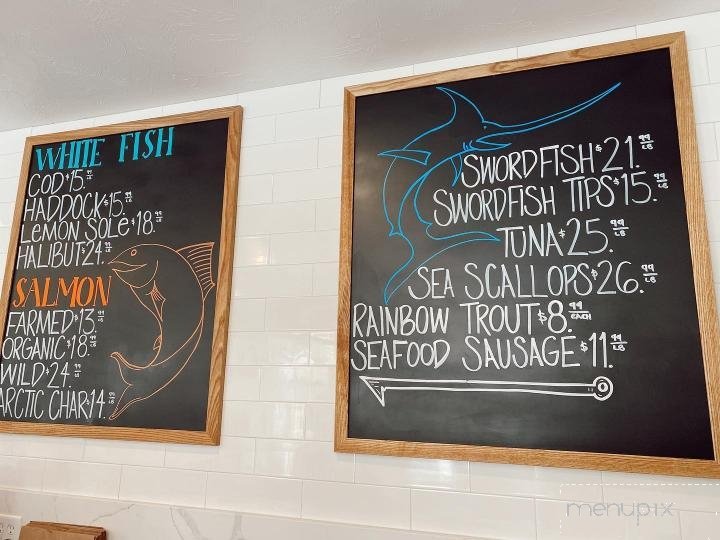 WHITE FISH
COD $15.99 LB
HADDOCK $15.99 LB
LEMON SOLE $18.99 LB
HALIBUT $24.99 LB
SALMON
FARMED $13.99 LB
ORGANIC $18.99 LB
WILD $24.99 LB
ARCTIC CHAR $14.99 LB
SWORDFISH $21.99 LB
SWORDFISH TIPS $15.99 LB
TUNA $25.99 LB
SEA SCALLOPS $26.99 LB
RAINBOW TROUT $8.99 EACH
SEAFOOD SAUSAGE $11.99 LB
menupix